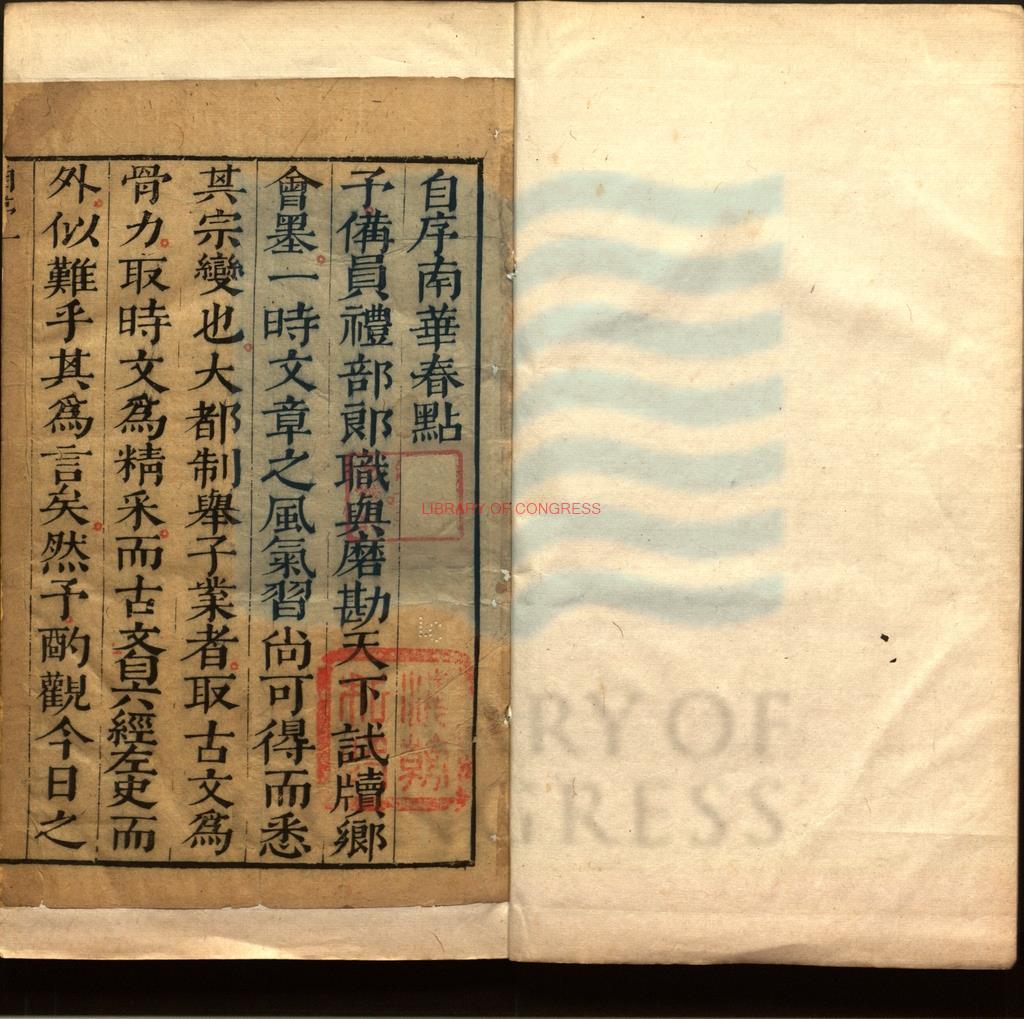 自序南華春點
予備員禮部郎職與磨勘天下試牘鄉
會墨一時文章之風氣習尚可得而悉
其宗變也大都制舉子業者取古文爲
骨力取時文爲精采而古文自六經左史而
外似難乎其爲言矣然予酌觀今日之
LIBRARY OF CONGRESS
RY OF
GRESS